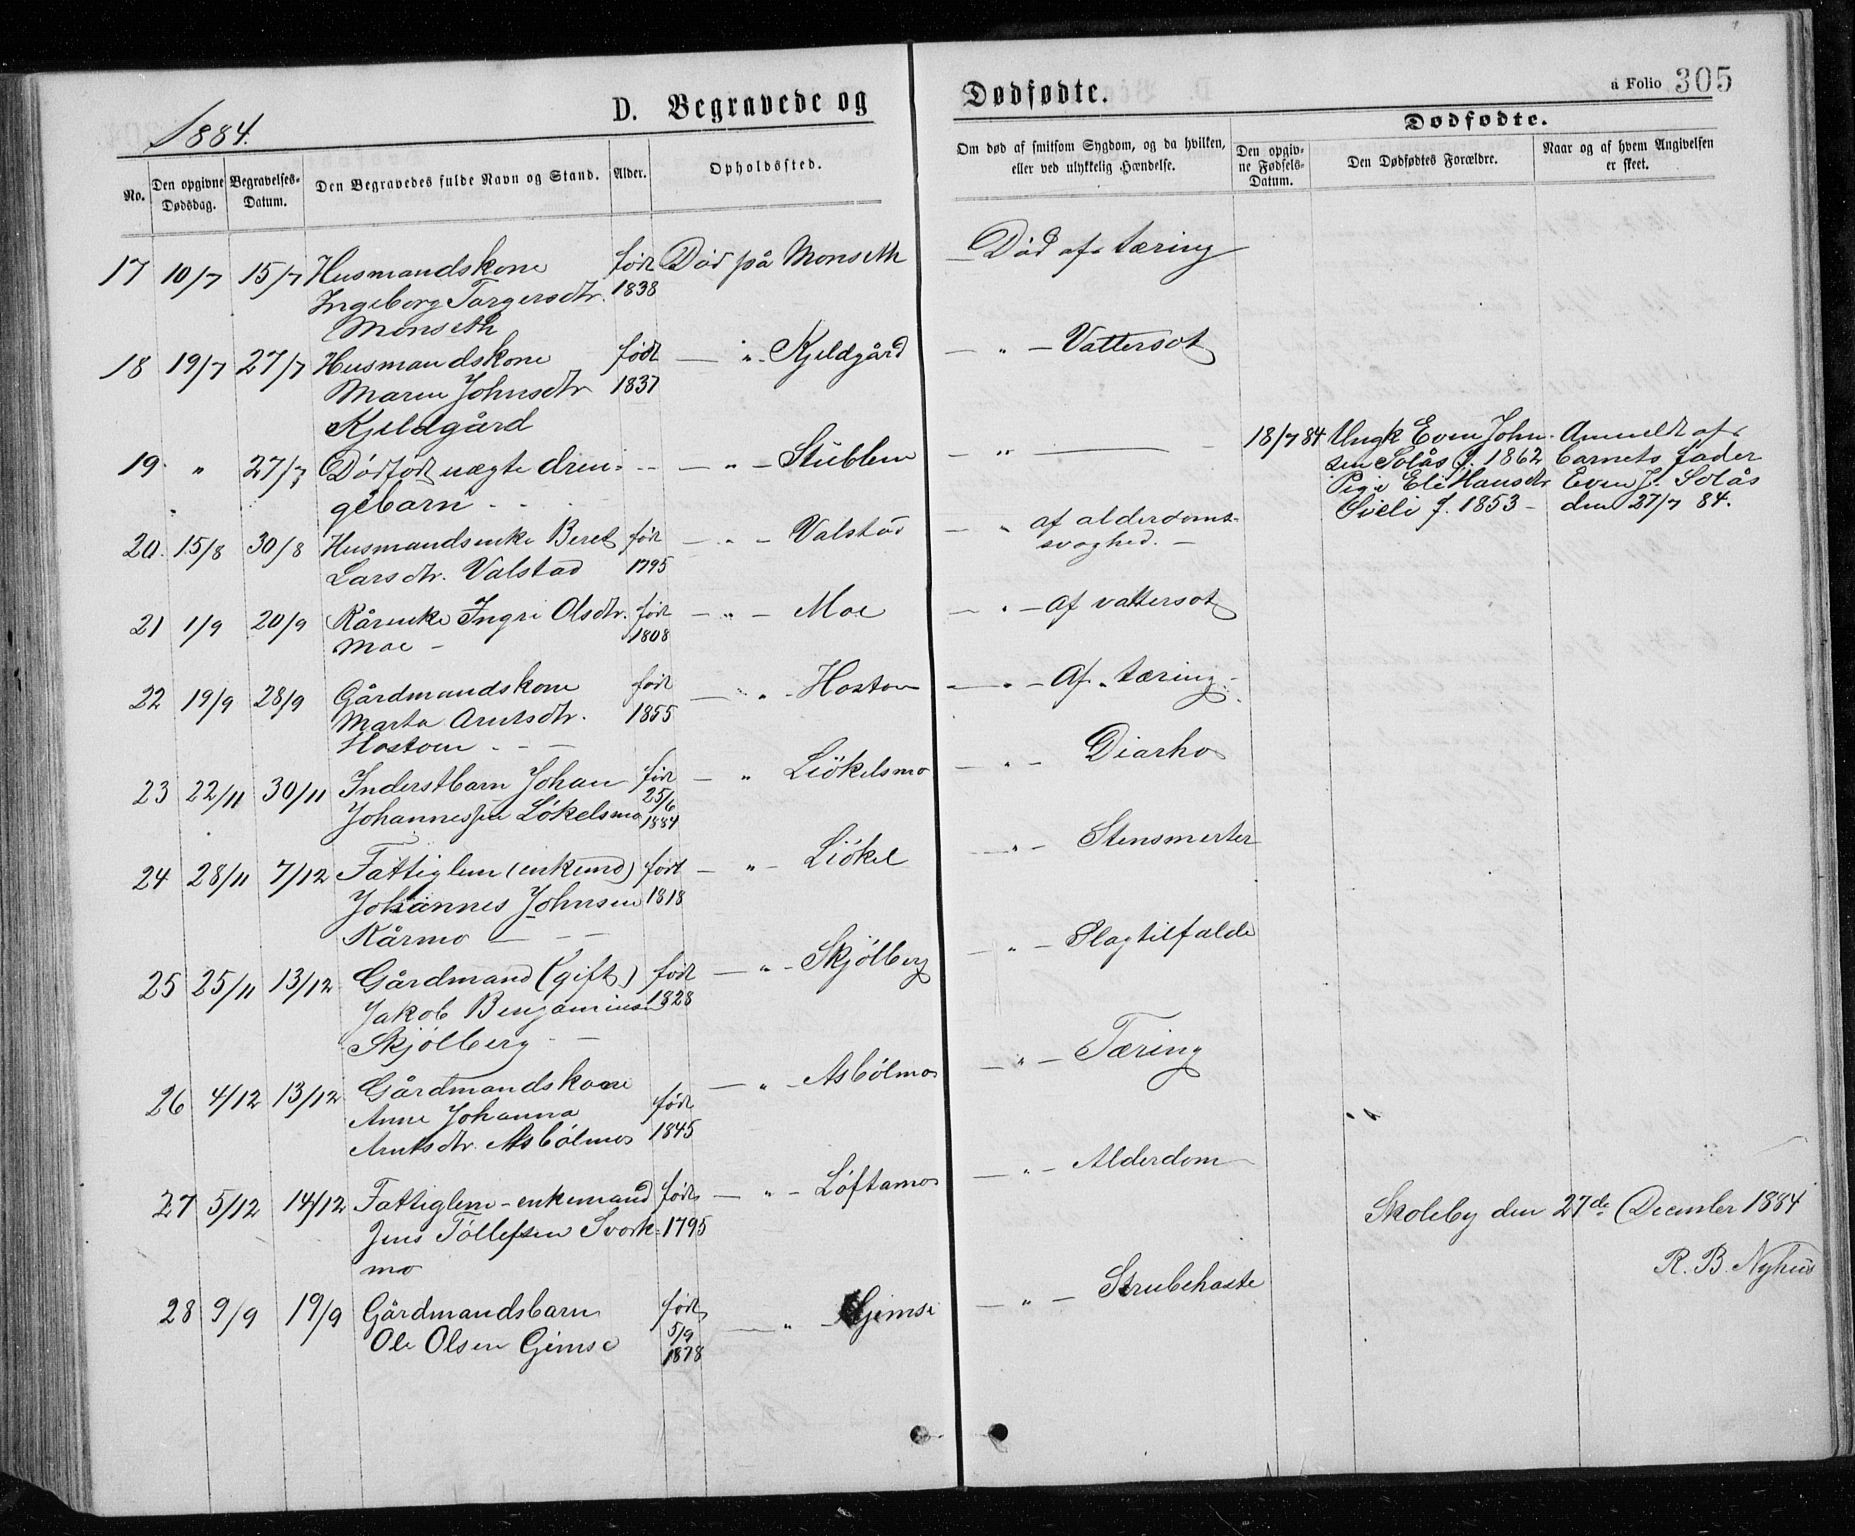 1884.
D. Begravede og
Dødfødte.
a Folio 305
No.
Den opgivne Dødsdag.
Begravelses-Datum.
Den Begravedes fulde Navn og Stand.
Alder.
Opholdssted.
Om død af smitsom Sygdom, og da hvilken, eller ved ulykkelig Hændelse.
Dødfødte.
Den opgivne Fødsels-Datum.
Den Dødfødtes Forældre.
Naar og af hvem Angivelsen er skeet.
17 10/7 15/7 Husmandskone født Død på Monseth Død af tæring
Ingeborg Torgersdtr. 1838
Monseth
18 19/7 27/7 Husmandskone født — " - Kjeldgård — " — Vattersot
Maren Johnsdtr 1837
Kjeldgård
19. " 27/7 Dødfødt uægte dren- -- — " — Stublem — " —— 18/7 84 Ungk Even John- Anmeldt af
gebarn - - sen Solås f. 1862 barnets fader
Pige Eli Hansdtr Even J. Solås
f. 1853 - den 27/7 84.
20. 15/8 30/8 Husmandsenke Beret født — " — Valstad — " af alderdoms-
Larsdtr. Valstad 1795 svaghed. —
21 1/9 20/9 Kårenke Ingri Olsdtr. født — " — Moe — " — af vattersot
Moe — 1808
22 19/9 28/9 Gårdmandskone født — " - Hoston — " — Af tæring -
Marta Arntsdtr. 1855
Hoston - - —
23 22/11 30/11 Inderstbarn Johan født — " Liökelsmo — " — Diarho
Johannessen Løkelsmo 25/6 1884
24 28/11 7/12 Fattiglem (enkemd) født — " — Liökel — " — Stensmerter
Johannes Johnsen 1818
Kårmo — — —
25 25/11 13/12 Gårdmand (gift) født — " - Skjølberg — " — Slagtilfælde
Jakob Benjaminsen 1828
Skjølberg - —
26 4/12 13/12 Gårdmandskone født — " — Asbølmo — " — Tæring
Anne Johanna 1845
Arntsdtr. Asbølmo
27 5/12 14/12 Fattiglem - enkemand født — " — Løftamo — " — Alderdom
Jens Tøllefsen Svork- 1795
mo
Skoleby den 27de December 1884
R. B. Nyhus
28 9/9 19/9 Gårdmandsbarn født — " — Gimse — " — Strubehoste
Ole Olsen Gimse 5/9 1878